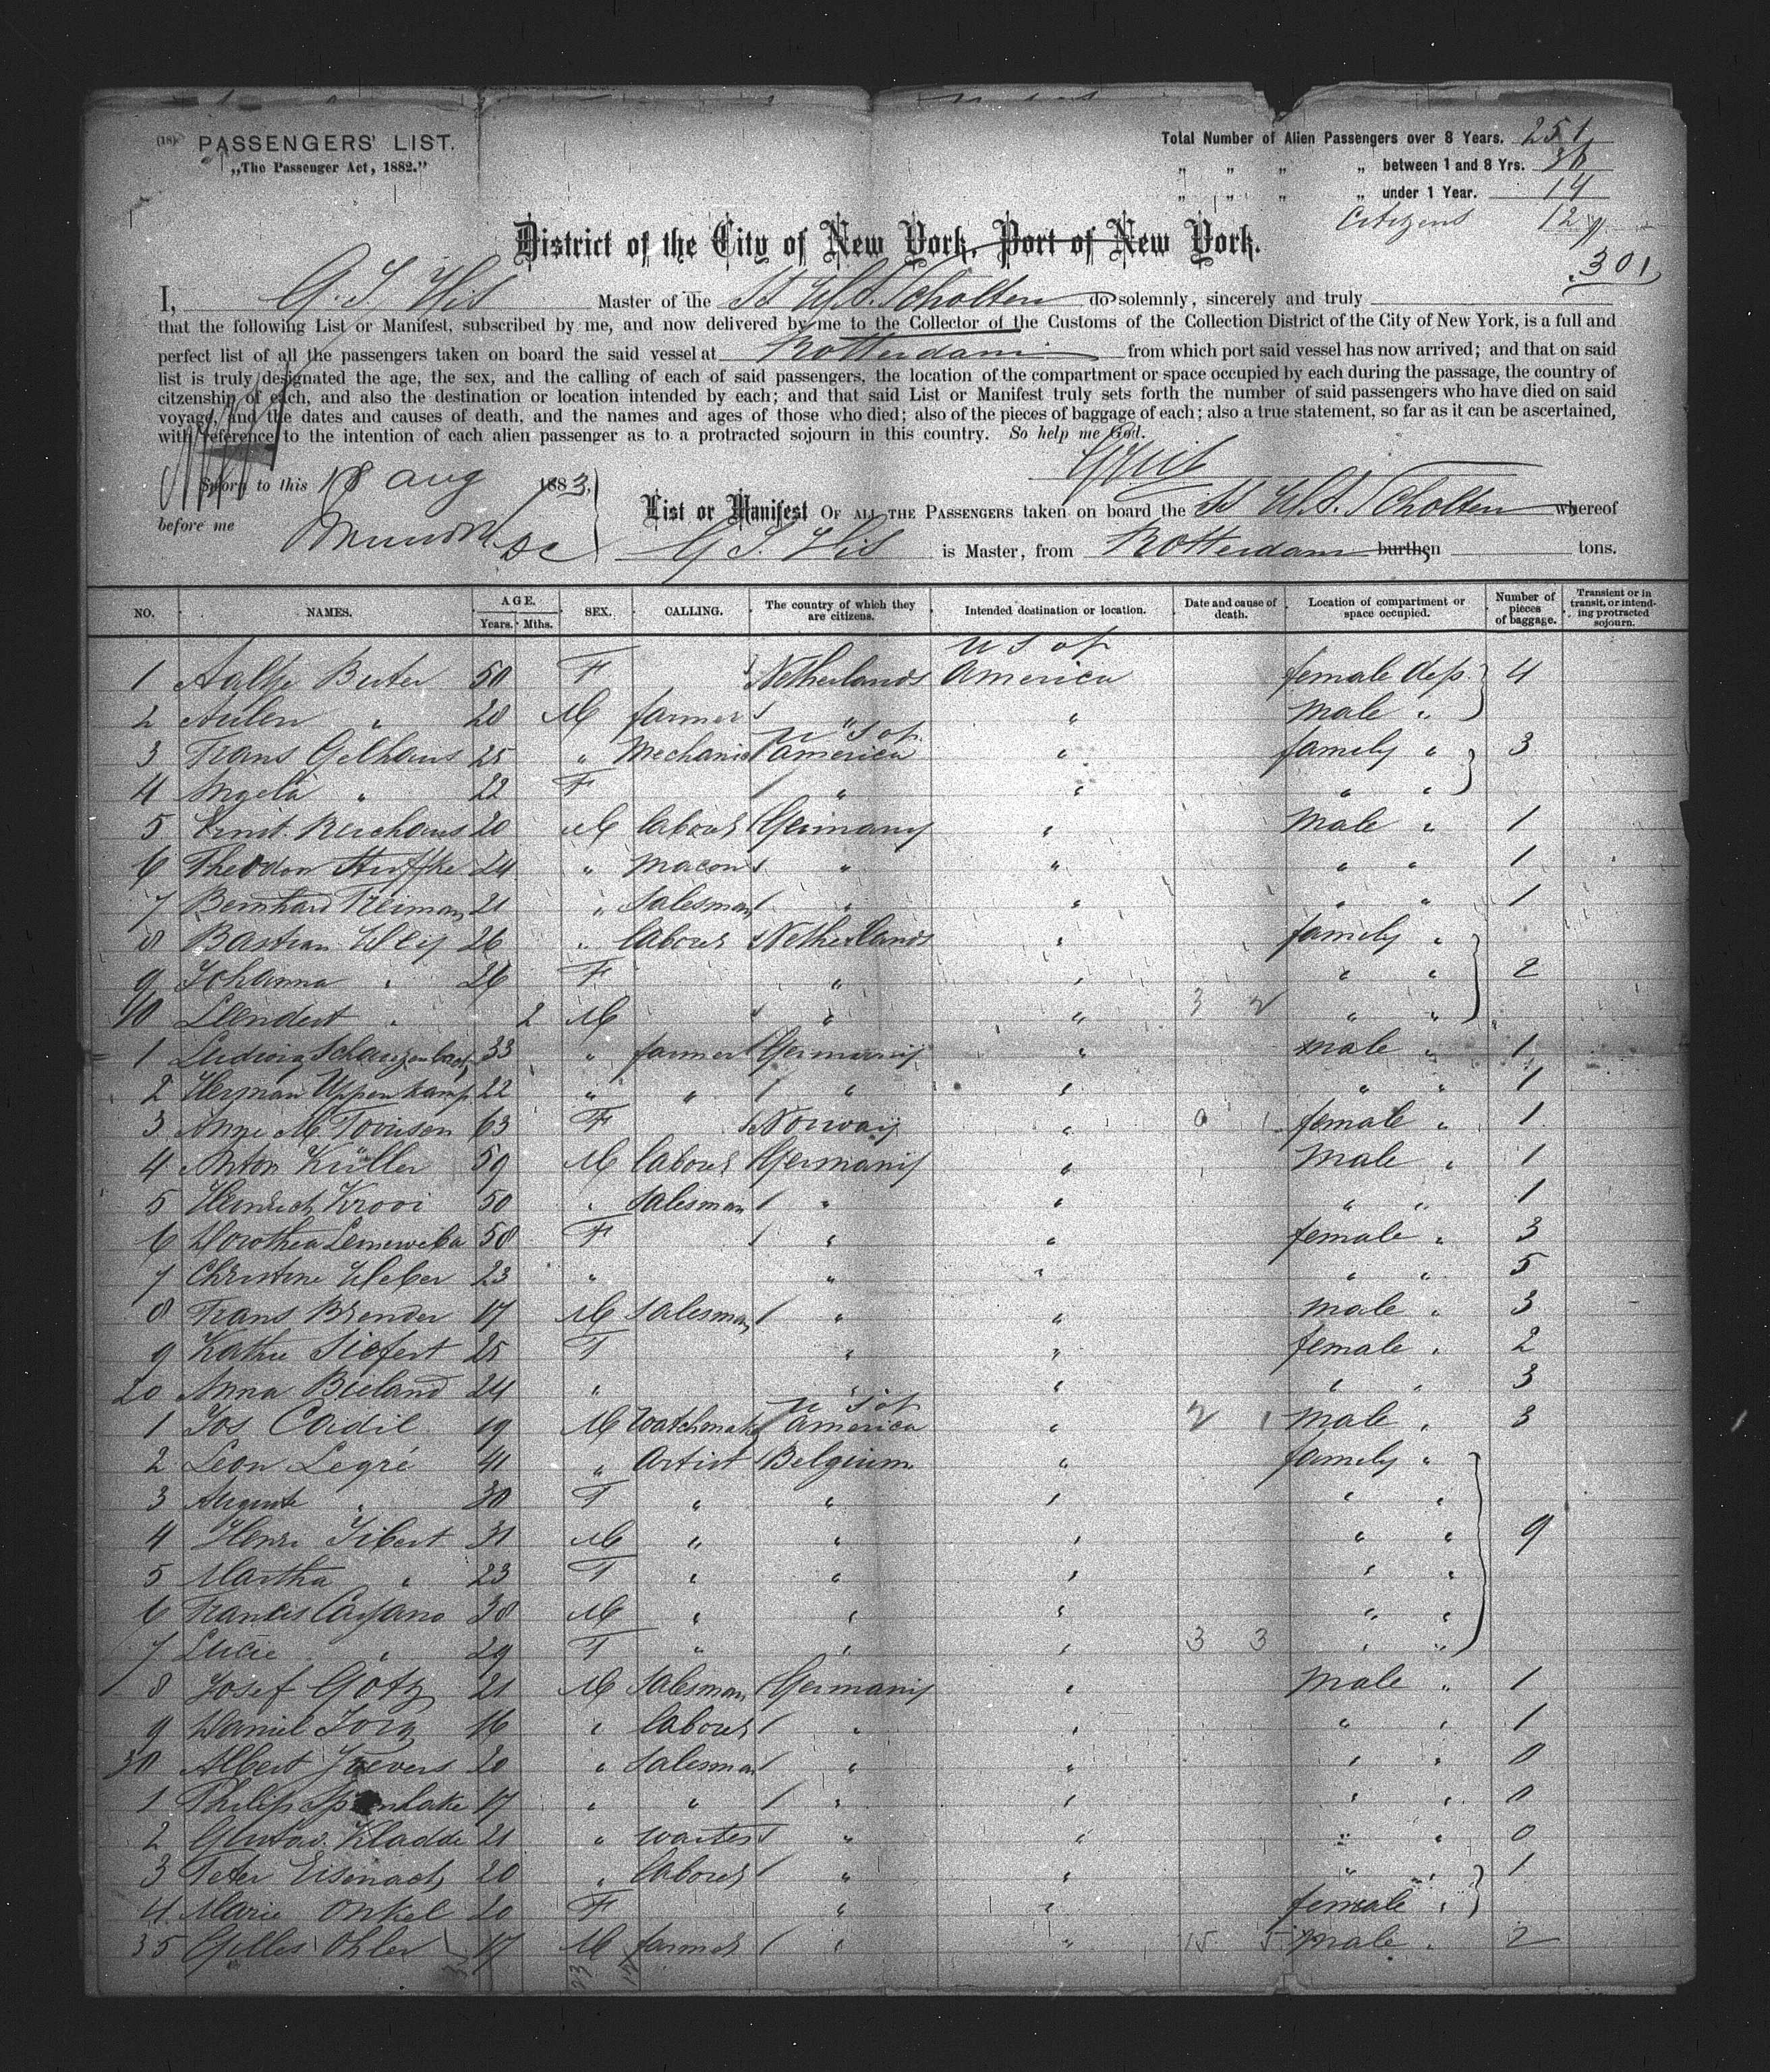 (18) PASSENGERS' LIST.
„The Passenger Act, 1882."
Total Number of Alien Passengers over 8 Years. 251
„ „ „ „ between 1 and 8 Yrs. 36
„ „ „ „ under 1 Year. 14
Citizens 12
301
District of the City of New York, Port of New York.
I, G. J. Vis Master of the SS W. A. Scholten do solemnly, sincerely and truly
that the following List or Manifest, subscribed by me, and now delivered by me to the Collector of the Customs of the Collection District of the City of New York, is a full and
perfect list of all the passengers taken on board the said vessel at Rotterdam from which port said vessel has now arrived; and that on said
list is truly designated the age, the sex, and the calling of each of said passengers, the location of the compartment or space occupied by each during the passage, the country of
citzenship of each, and also the destination or location intended by each; and that said List or Manifest truly sets forth the number of said passengers who have died on said
voyage, and the dates and causes of death, and the names and ages of those who died; also of the pieces of baggage of each; also a true statement, so far as it can be ascertained,
with reference to the intention of each alien passenger as to a protracted sojourn in this country. So help me God.
GJVis
Sworn to this 18 aug 1883,
before me
List or Manifest OF ALL THE PASSENGERS taken on board the SS W. A. Scholten whereof
G J. Vis is Master, from Rotterdam burthen tons.
NO. NAMES. AGE. Years. Mths. SEX. CALLING. The country of which they are citizens. Intended destination or location. Date and cause of death. Location of compartment or space occupied. Number of pieces of baggage. Transient or in transit, or intending protracted sojourn.
1 Aaltje Buter 50 F Netherlands U S of America female dep. 4
2 " 28 M farmer " " male "
3 Frans Gelhaus 25 " Mechanic U S of America " family " 3
4 Angela " 22 F " " " "
5 Ernst Reichaus 20 M labour Germany " Male " 1
6 Theodor 24 " macon " " " " 1
7 Bernhard Treiman 21 " Salesman " " " " 1
8 Bastian Vlij 26 " labour Netherlands " family "
9 Johanna " 26 F " " " " 2
10 Leendert " 2 M " " 3 2 " "
1 Ludwig 33 " farmer Germany " male " 1
2 Herman Uppenkamp 22 " " " " " " 1
3 Anne M 63 F Norway " 0 1 female " 1
4 Anton Küller 59 M labour Germany " Male " 1
5 Heinrich Krooi 50 " Salesman " " " " 1
6 Dorothea 58 F " " female " 3
7 Christine Weber 23 " " " " " 5
8 Frans Brender 17 M Salesman " " male " 3
9 Kathie Siefert 25 F " " female " 2
20 Anna Bieland 24 " " " " " 3
1 Jos. Cadil 19 M Watchmaker U S of America " 2 1 Male " 3
2 Leon Legré 41 " Artist Belgium " family "
3 Auguste " 30 F " " " " "
4 Henri Jibert 31 M " " " " " 9
5 Martha " 23 F " " " " "
6 Francis 38 M " " " " "
7 Lucie " 29 F " " " 3 3 " "
8 Josef Götz 21 M Salesman Germany " Male " 1
9 Daniel Jorg 16 " labour " " " " 1
30 Albert 20 " Salesman " " " " 0
1 Philip 17 " " " " " " 0
2 Gustav Kladde 21 " waiter " " " " 0
3 Peter Eisenach 20 " labour " " " " 1
4 Marie Onkel 20 F " " female "
35 Gilles Ohler 17 M farmer " " 15 5 male " 2
23 12